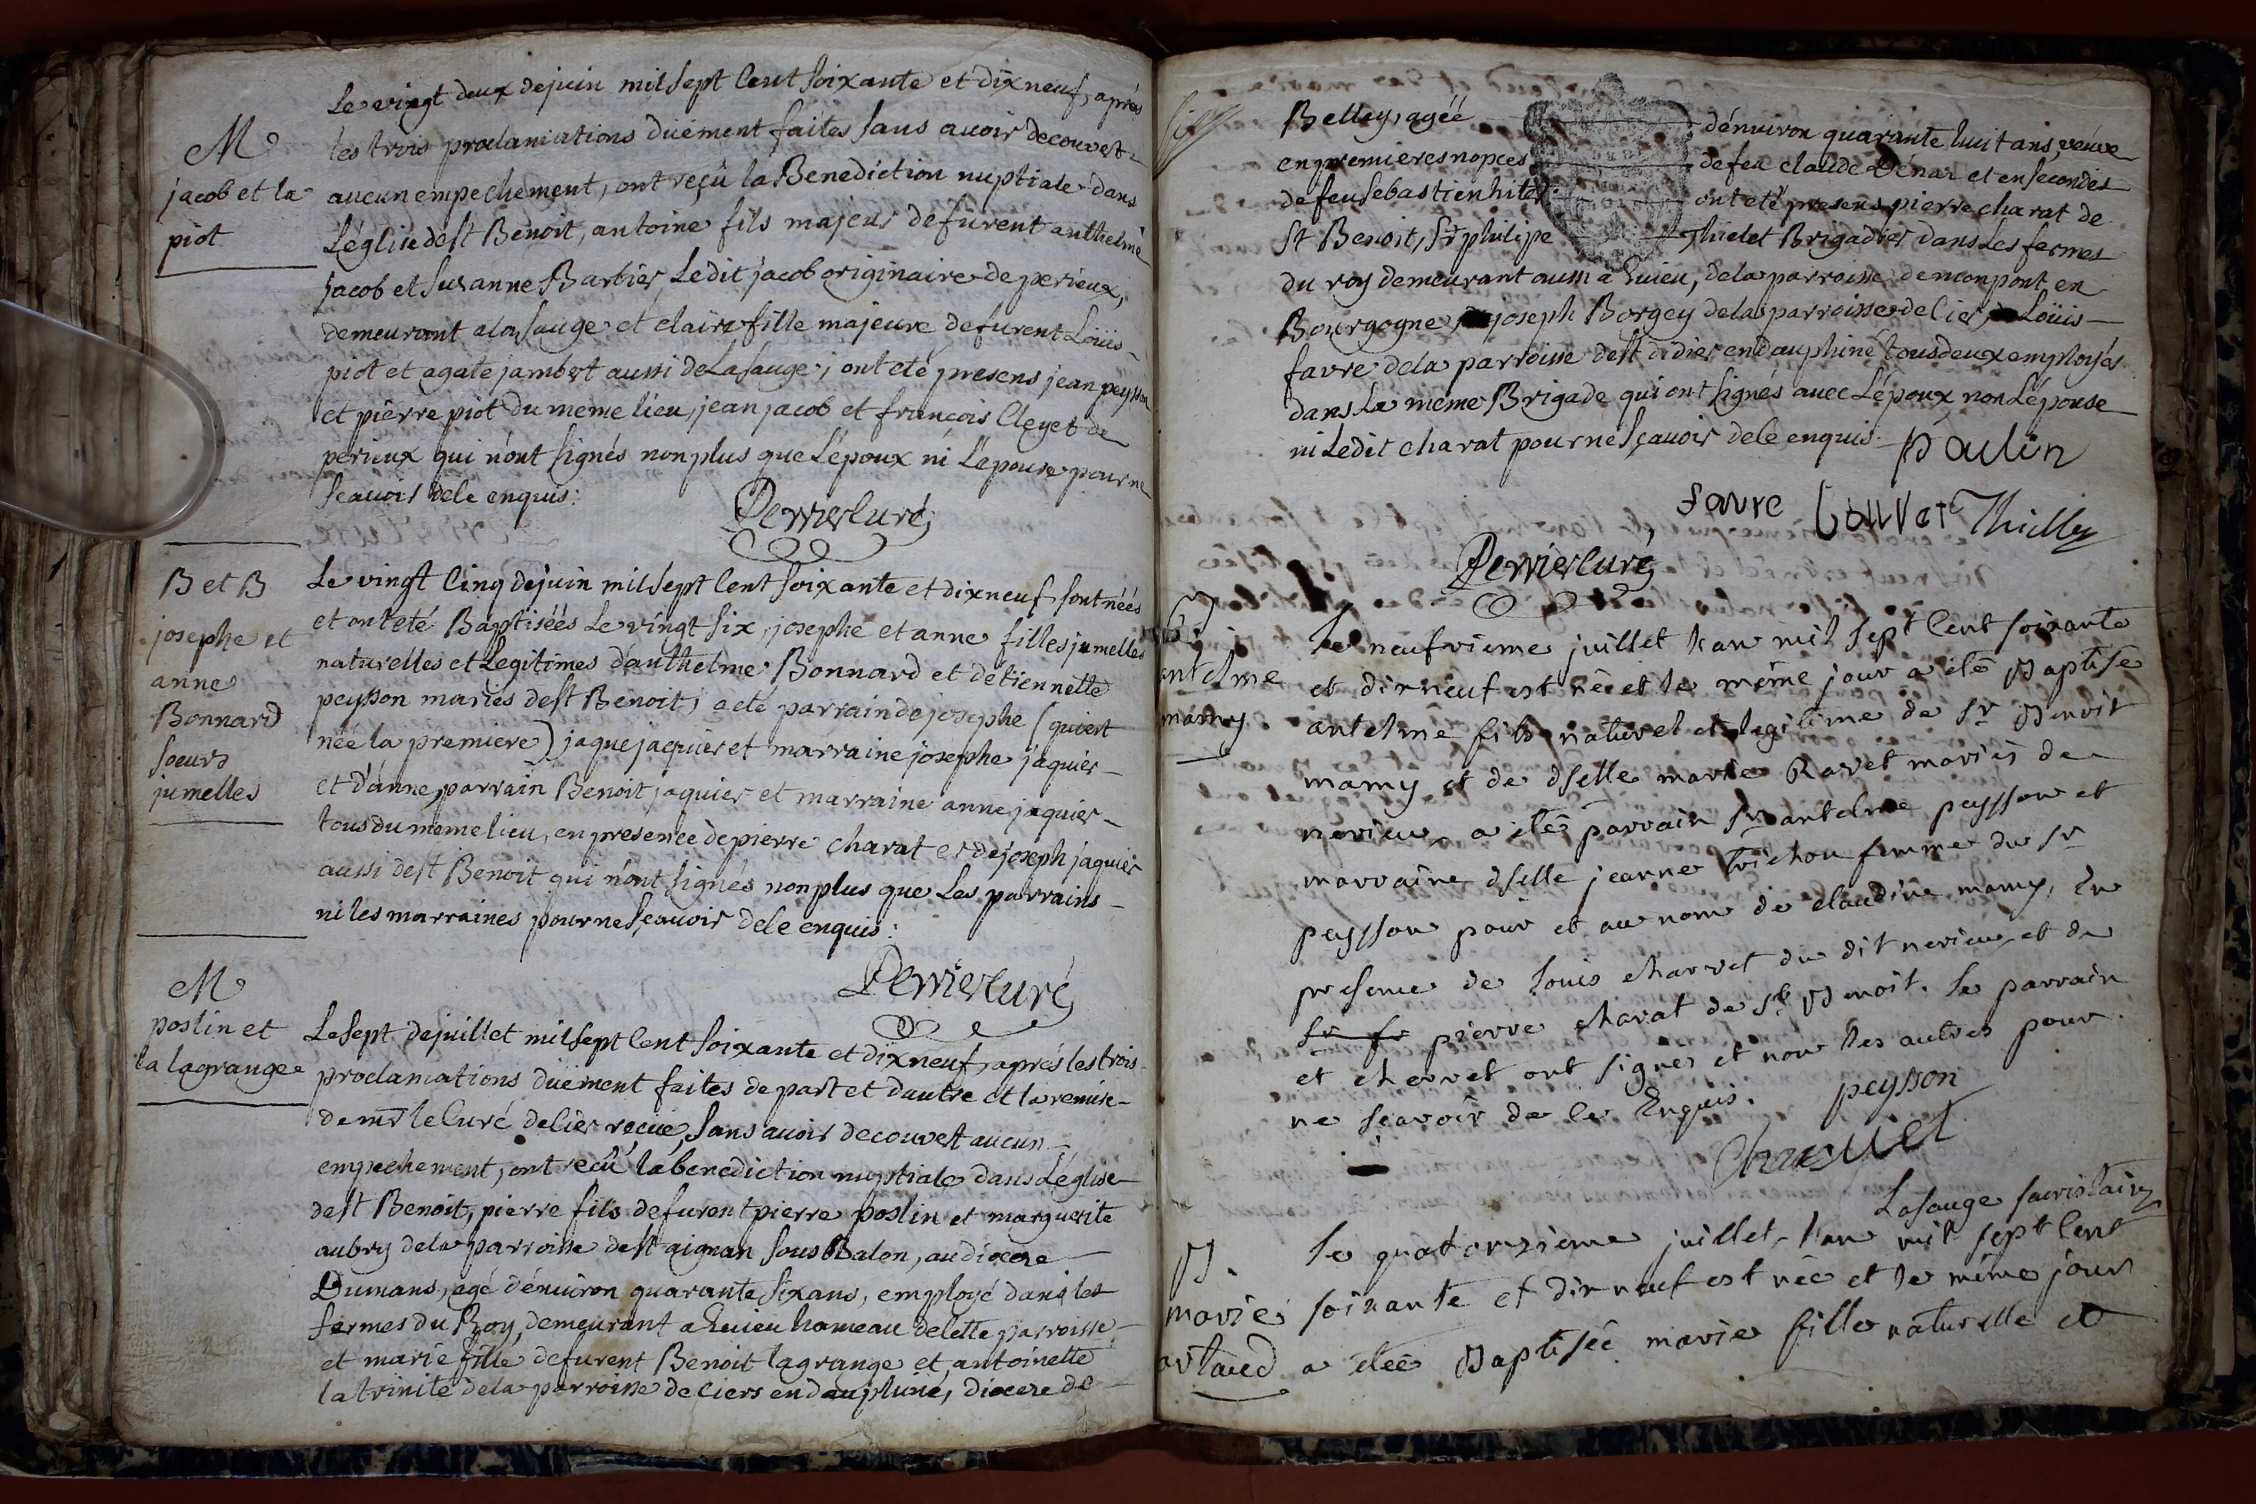 M
jacob et la
piot
Le vingt deux de juin mil sept cent soixante et dix neuf, aprés
les trois proclamations düement faites sans avoir decouvert
aucun empechement, ont reçû la Benediction nuptiale dans
L'église de st Benoit, antoine fils majeur de fûrent anthelme
jacob et Susanne Barbier, Ledit jacob originaire de perieux,
demeurant a la sauge et claire fille majeure de furent Loüis
piot et agate jambet aussi de La sauge; ont eté presens jean peysson
et pierre piot du meme lieu, jean jacob et françois Cleyet de
perieux qui n'ont signés non plus que L'époux ni L'epouse pour ne
scavoir de le enquis:
Perrier curé
B et B
josephe et
anne
Bonnard
soeurs
jumelles
Le vingt cinq de juin mil sept cent soixante et dix neuf sont néés
et ont eté Baptiséés Le vingt six, josephe et anne filles jumelles
naturelles et Legitimes d'anthelme Bonnard et détiennette
peysson mariés de st Benoit; a eté parrain de josephe (qui est
née la premiere) jaque jaquier et marraine josephe jaquier
et d'anne, parrain Benoit jaquier et marraine anne jaquier
tous du meme lieu, en présence de pierre charat et de joseph jaquier
aussi de st Benoit qui n'ont signés non plus que Les parrains
ni les marraines pour ne sçavoir de le enquis:
Perrier curé
M
poslin et
la lagrange
Le sept de juillet mil sept cent soixante et dix neuf, aprés les trois
proclamations düement faites de part et d'autre et la remise
de mr le Curé de lier reçüe, sans avoir decouvert aucun
empechement, ont reçû la benediction nuptiale dans L'église
de st Benoit, pierre fils de furent pierre poslin et marguerite
aubry de la parroisse de st aignan sous Balon, au diocese
Dumans, agé d'énviron quarante six ans, employé dans les
fermes du Roy, demeurant a Evieu hameau de cette parroisse
et marie fille de furent Benoit lagrange et antoinette
la trinité de la parroisse de Ciers en dauphiné, diocese de
Belley, agéé d'énviron quarante huit ans, veuve
en premieres nopces de feu claude Dénar et en secondes
de feu Sebastien hiter ont eté presens pierre charat de
St Benoit, Sr philippe Thielet Brigadier dans Les fermes
du roy demeurant aussi a Evieu, de la parroisse de monpont en
Bourgogne joseph Borgey de la parroisse de Cier Loüis
favre de la parroisse de st didier en dauphiné tous deux employés
dans La meme Brigade qui ont signés avec L'époux non L'épouse
ni Ledit charat pour ne sçavoir de le enquis. Paulin
favre Thilley
Perrier curé
B
antelme
mamy.
Le neufvieme juillet L'an mil sept Cent soixante
et dix neuf est né et le même jour a eté Baptisé
antelme fils naturel et legitime de Sr Benoit
mamy et de dselle marie Ravet mariés de
nerieu a été parrain Sr antelme peysson et
marraine dselle jeanne trichon femme du Sr
peysson pour et au nom de claudine mamy, En
presence de Louis charvet du dit nerieu et de
Sr fr pierre charat de St Benoit. Le parrain
et chervet ont signes et non les autres pour
ne scavoir de le Enquis. peysson
Charvet
Lasauge sacristain
B.
marie
artaud
Le quatorzieme juillet L'an mil sept Cent
soixante et dix neuf est née et le même jour
a etée Baptisée marie fille naturelle et